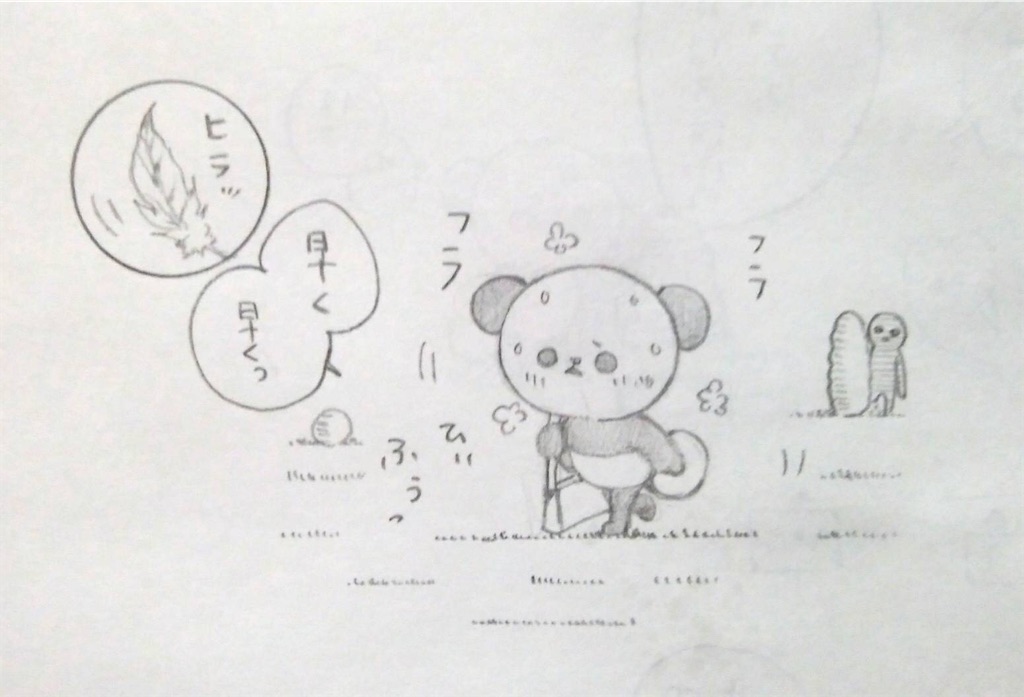 ヒラッ
早く
早くっ
フラ
フラ
ひぃ
ふぅっ